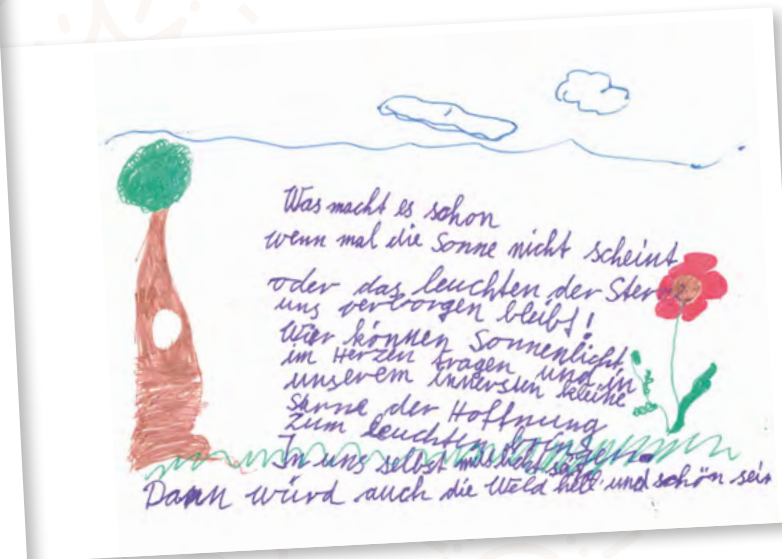 Was macht es schon
wenn mal die Sonne nicht scheint
oder das leuchten der Sterne
uns verborgen bleibt!
Wier können Sonnenlicht
im Herzen tragen und in
unserem innersten kleine
Sterne der Hoffnung
Zum leuchten bringen.
In uns selbst muss
Dann würd auch die Weld hell und schön sein